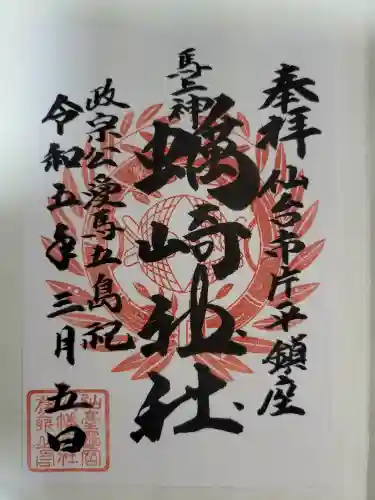 奉拝 仙台市片平鎮座
馬上神
蛎崎神社
政宗公愛馬五島祀
令和五年三月五日